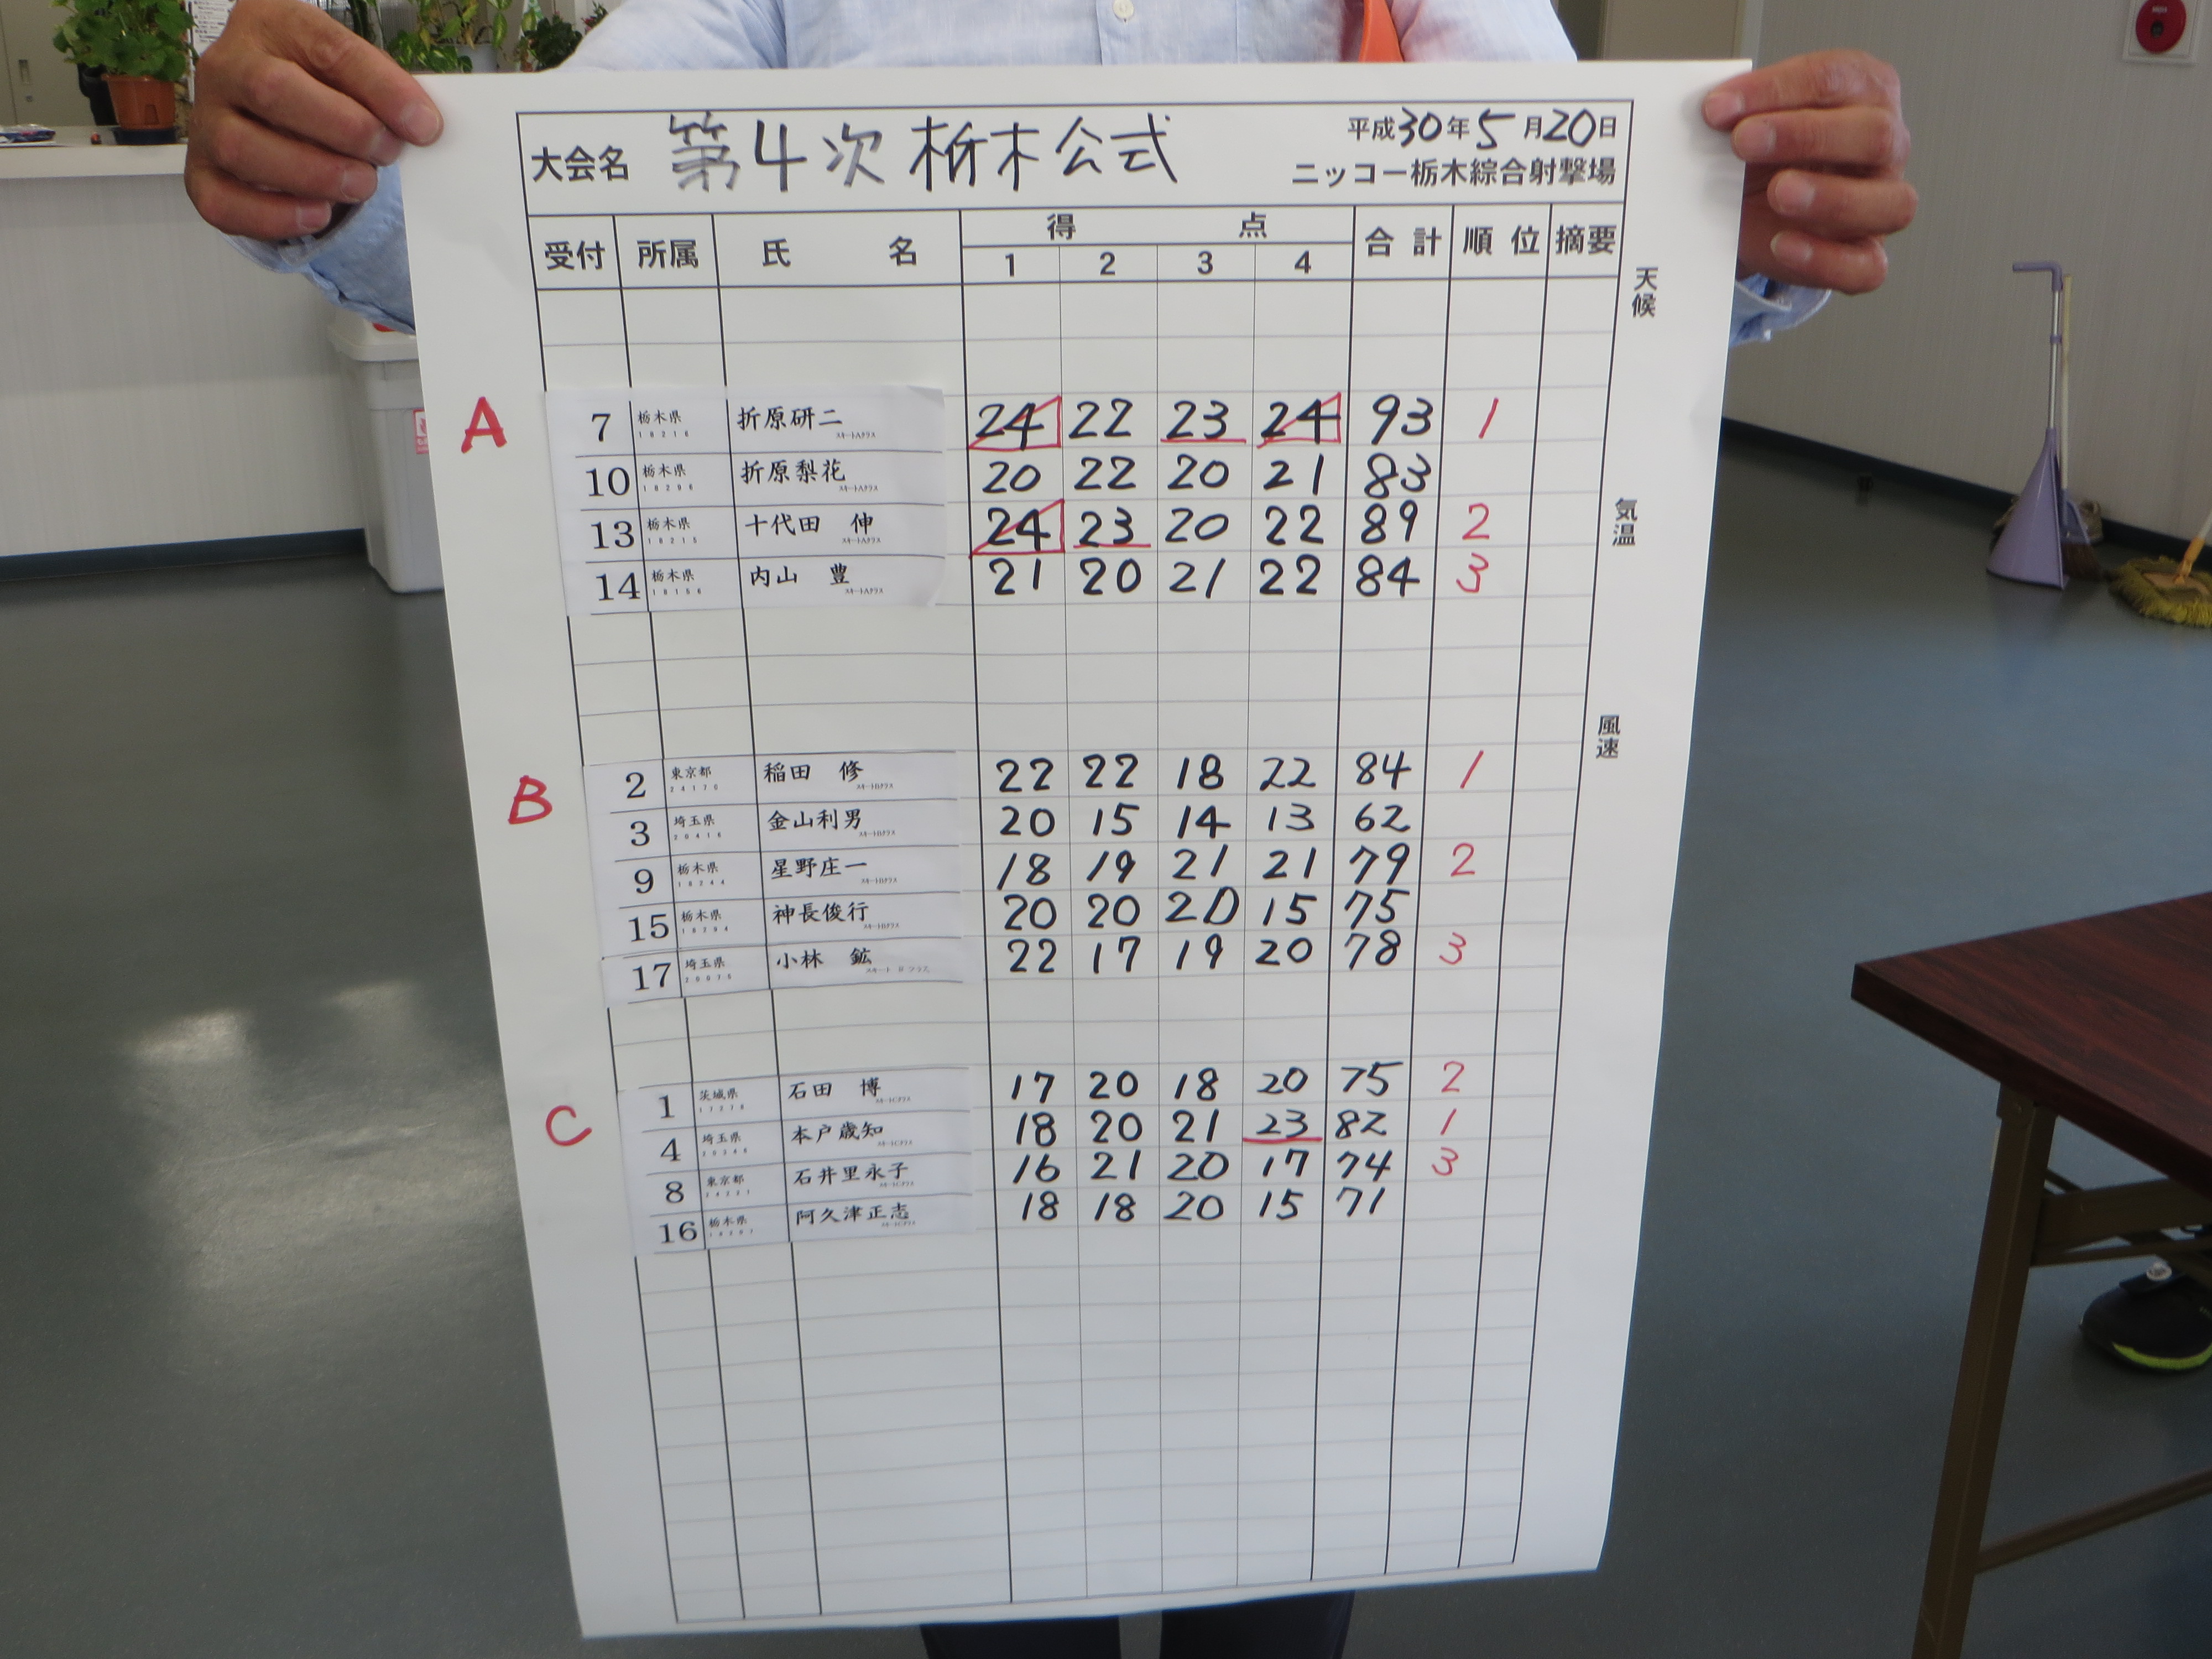 大会名 第4次 栃木公式 平成30年5月20日
ニッコー栃木綜合射撃場
受付 所属 氏名 得点 合計 順位 摘要
1 2 3 4
天候
A
7 栃木県 折原研二 24 22 23 24 93 1
18216 スキートAクラス
10 栃木県 折原梨花 20 22 20 21 83
18296 スキートAクラス
13 栃木県 十代田 伸 24 23 20 22 89 2
18215 スキートAクラス
気温
14 栃木県 内山 豊 21 20 21 22 84 3
18156 スキートAクラス
風速
B
2 東京都 稲田 修 22 22 18 22 84 1
24170 スキートBクラス
3 埼玉県 金山利男 20 15 14 13 62
20416 スキートBクラス
9 栃木県 星野庄一 18 19 21 21 79 2
18244 スキートBクラス
15 栃木県 神長俊行 20 20 20 15 75
18294 スキートBクラス
17 埼玉県 小林 鉱 22 17 19 20 78 3
スキート B クラス
C
1 茨城県 石田 博 17 20 18 20 75 2
スキートCクラス
4 埼玉県 本戸歳知 18 20 21 23 82 1
スキートCクラス
8 東京都 石井里永子 16 21 20 17 74 3
24221 スキートCクラス
16 栃木県 阿久津正志 18 18 20 15 71
スキートCクラス